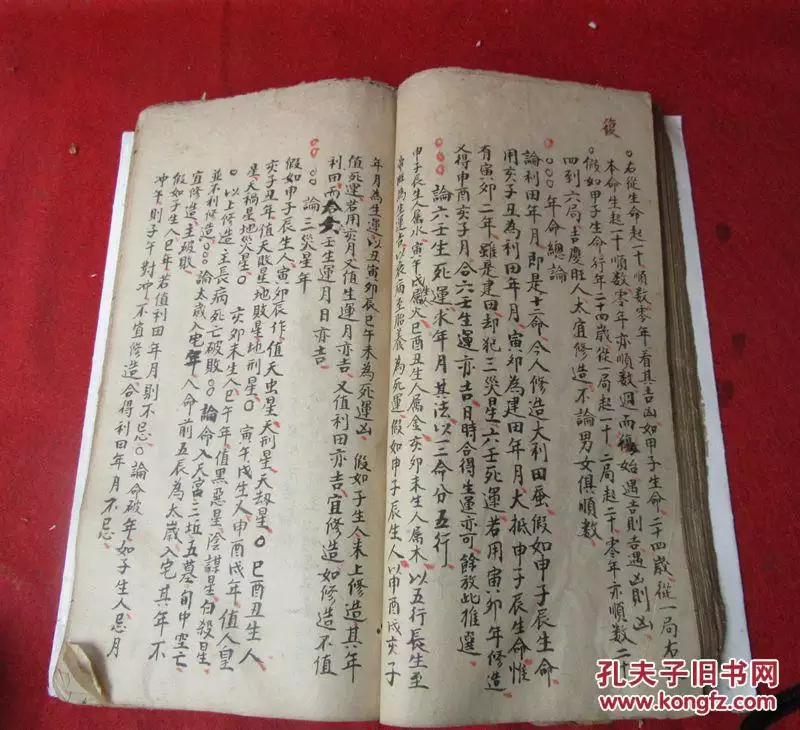 復
右從生命起一十順數零年看其吉凶如甲子生命二十四歲從一局右
本命生起一十順數零年亦順數週而復始遇吉則吉遇凶則凶
假如甲子生命行年二十四歲從一局起一十二局起二十零年亦順數二十
四到六局吉慶旺人大宜修造不論男女俱順數
年命總論
論利田年月即是十二命今人修造大利田蚕假如申子辰生命惟
用亥子丑為利田年月寅卯為建田年月大抵申子辰生命
有寅卯二年雖是建田却犯三災星六壬死運若用寅卯年修造
又得申酉亥子月合六壬生運亦吉日時合得生運亦可餘放此推選
論六壬生死運求年月其法以三命分五行
申子辰生人属水寅午戌生人属火巳酉丑生人属金亥卯未生人属木以五行長生至
帝旺為生運吉以衰病至胎養為死運假如申子辰生人以申酉戌亥子
年月為生運以丑寅卯辰巳午未為死運凶假如子生人未上修造其年
值死運若用亥月又值生運月亦吉又值利田亦吉宜修造如修造不值
利田而六壬生運月日亦吉
論三災星年
假如申子辰生人寅卯辰作值天虫星天刑星天劫星巳酉丑生人
亥子丑年值天敗星地敗星地刑星寅午戌生人申酉戌年值人皇
星天禍星地災星亥卯未生人巳午年值黑惡星陰謀星白殺星
以上修造主長病死亡破敗論命入天宮三坵五墓旬中空亡
並不利修造論太歲入宅年人命前五辰為太歲入宅其年不
宜修造主破敗
假如子生人巳年若值利田年月則不忌論命破年如子生人忌月
冲午則子午對冲不宜修造合得利田年月不忌
孔夫子旧书网
www.kongfz.com